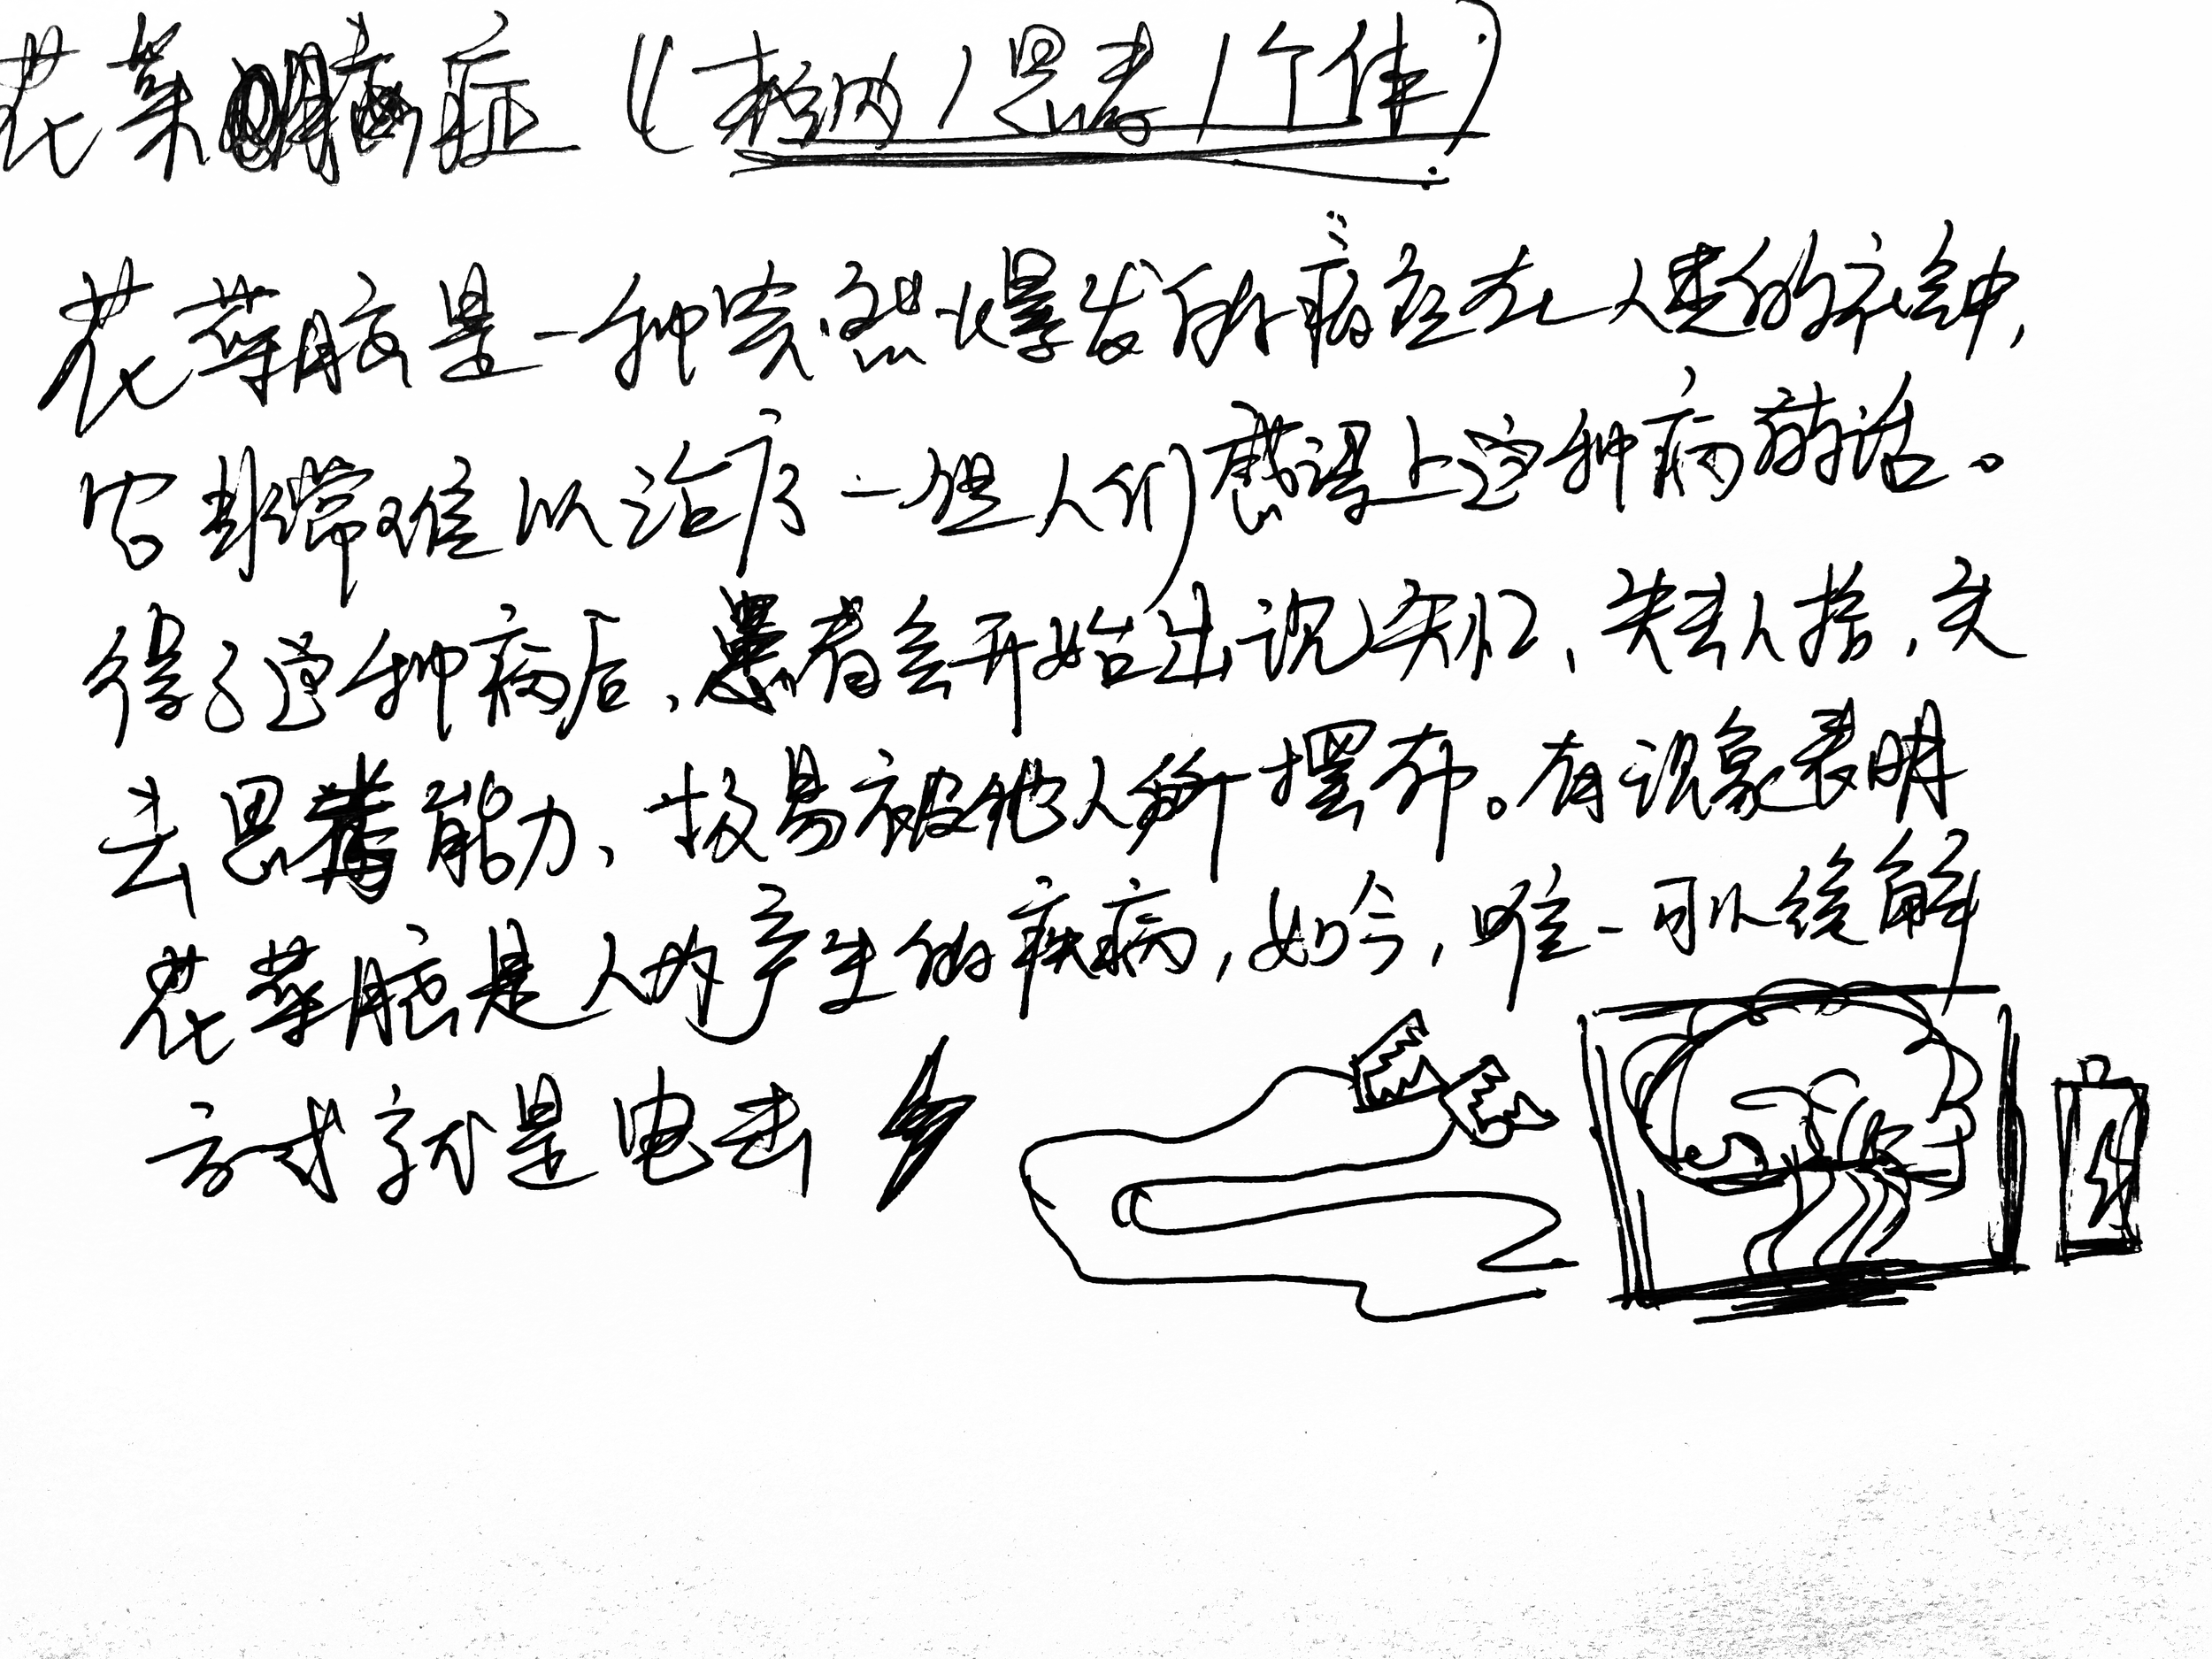 花菜脑症（控制/思考/个体）
花菜脑是一种突然爆发的病症在人造的社会中，
它非常难以治疗一但人们感误上这种病的话。
得了这种病后、患者会开始出现失忆、失去人格，失
去思考能力、极易被他人所摆布。有现象表明
花菜脑是人为产生的疾病，如今，唯一可以缓解
方式就是电击